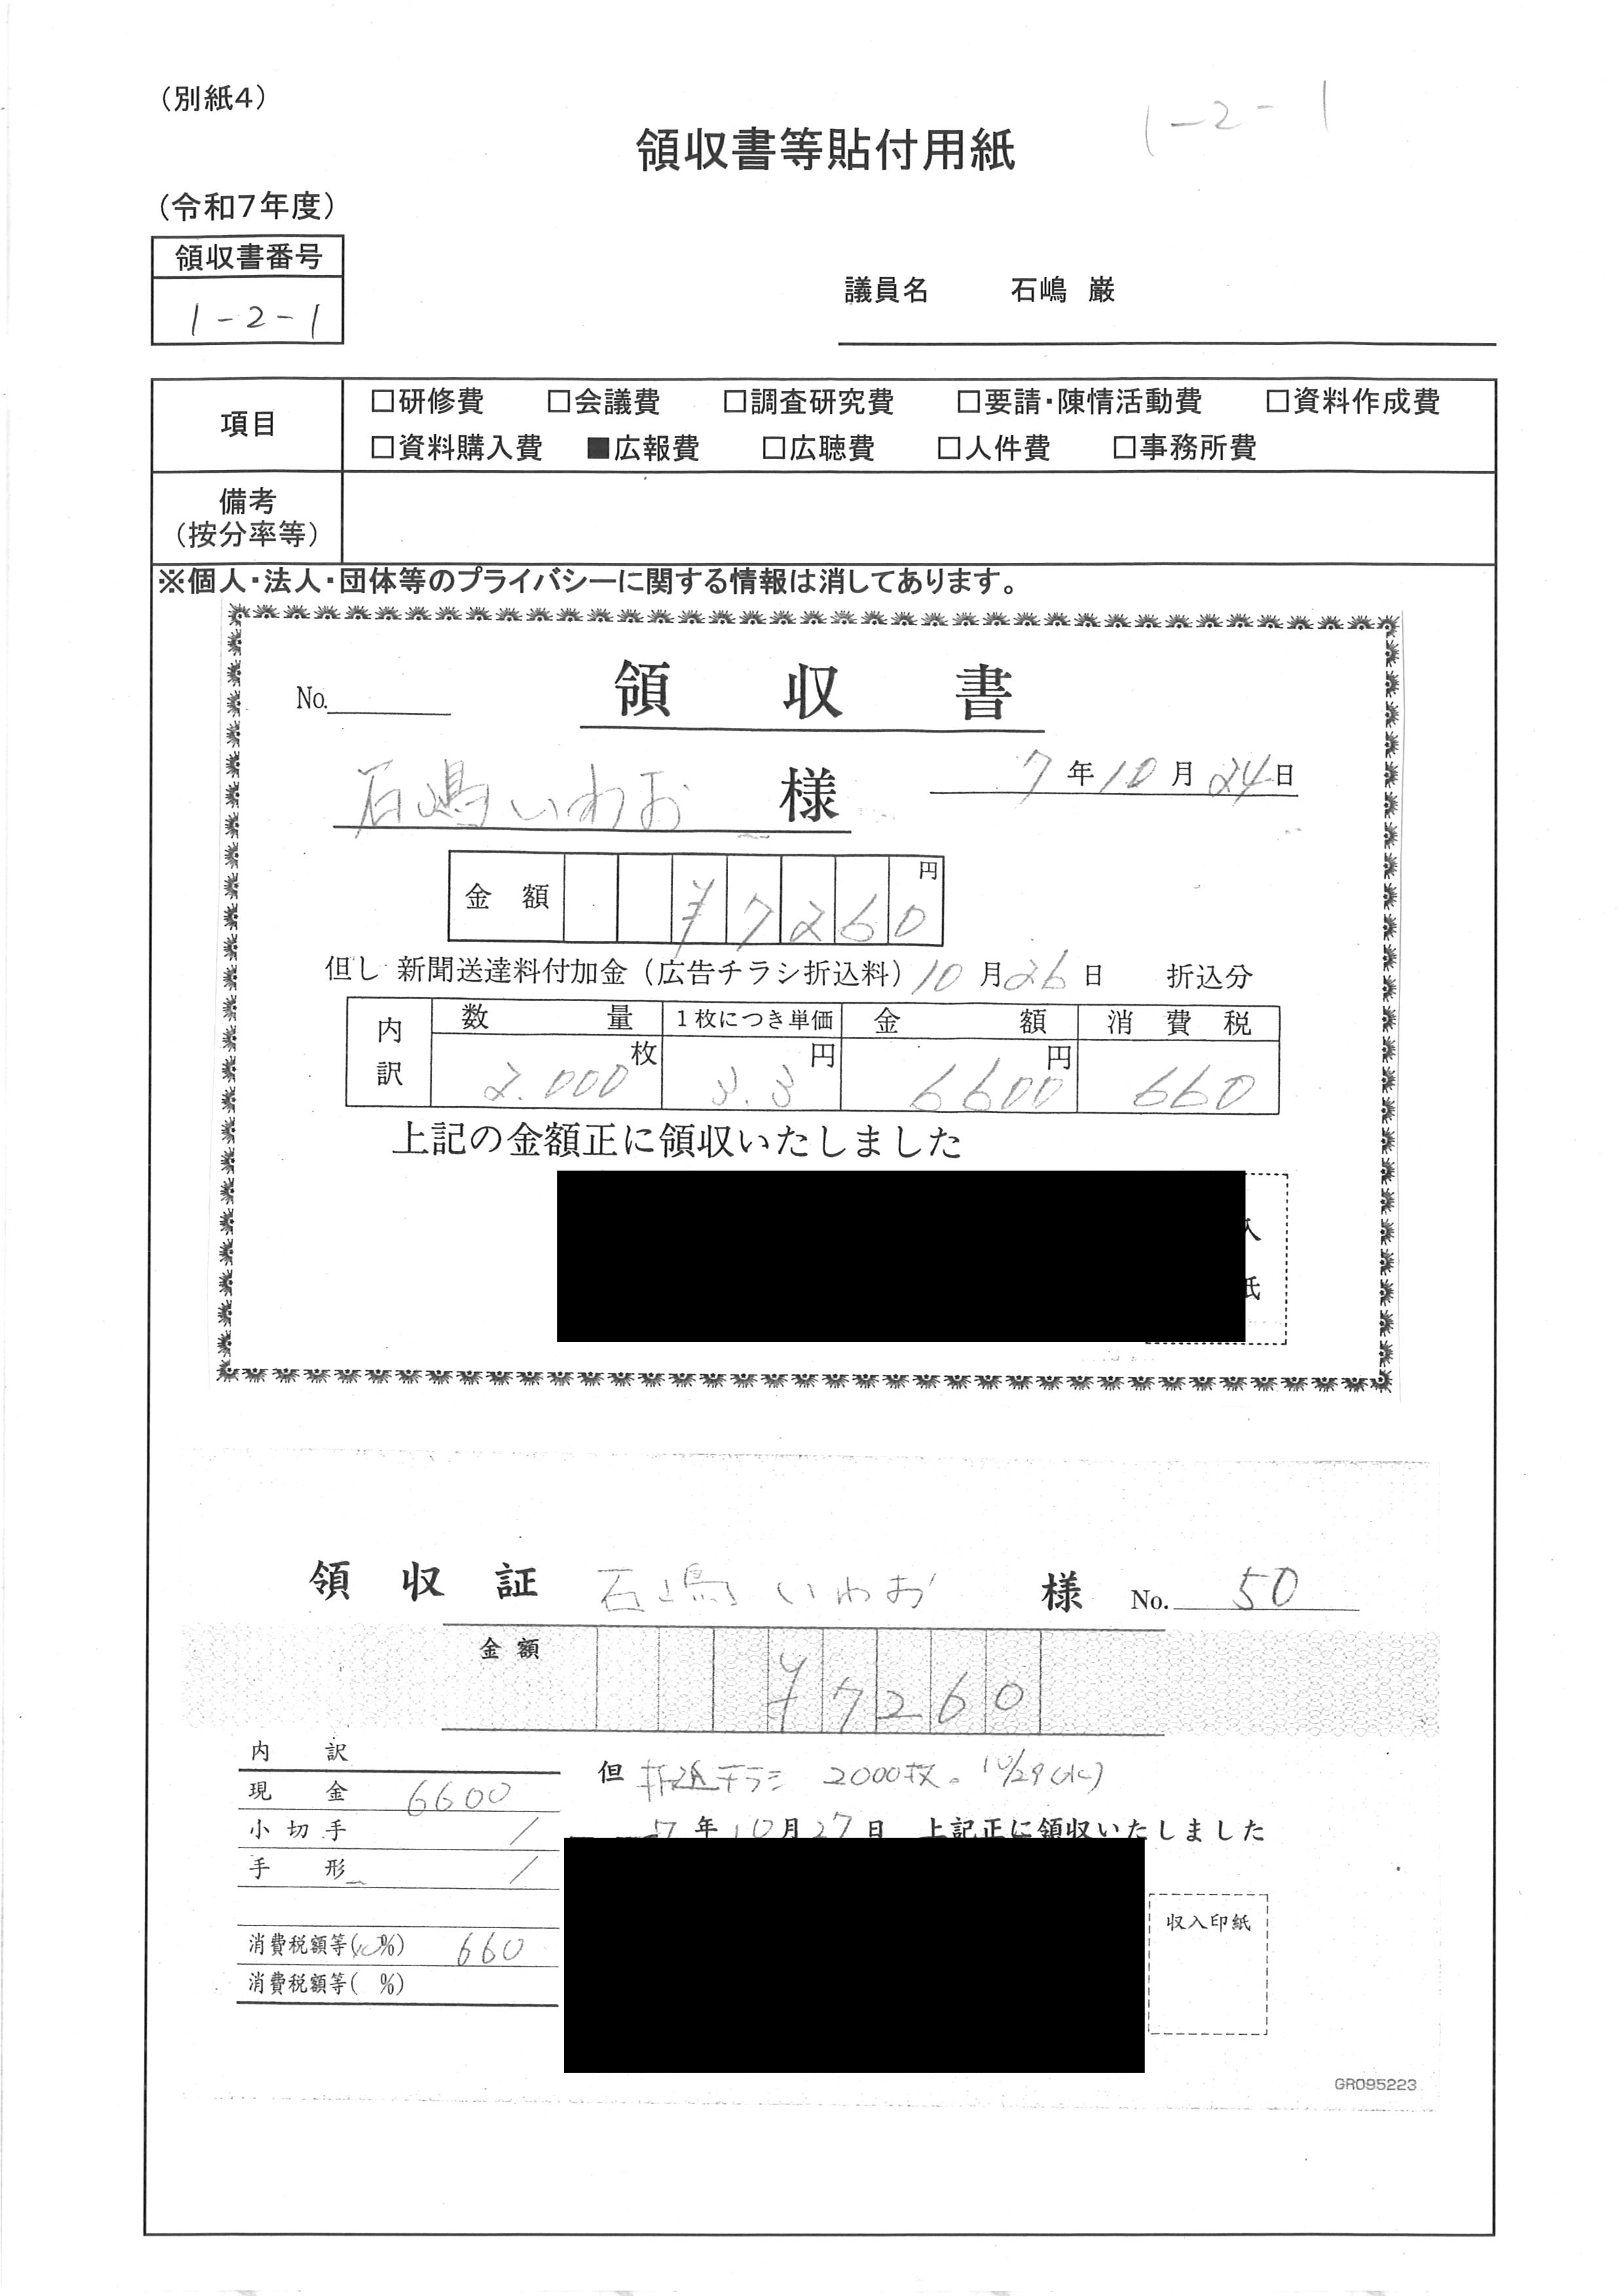 （別紙4）
1-2-1
領収書等貼付用紙
（令和7年度）
領収書番号
1-2-1
議員名 石嶋 巌
項目
□研修費 □会議費 □調査研究費 □要請・陳情活動費 □資料作成費
□資料購入費 ■広報費 □広聴費 □人件費 □事務所費
備考
（按分率等）
※個人・法人・団体等のプライバシーに関する情報は消してあります。
領収書
No.
石嶋いわお 様
7年10月24日
金額 ¥7260円
但し 新聞送達料付加金（広告チラシ折込料）10月26日 折込分
内訳 数量 1枚につき単価 金額 消費税
2.000枚 3.3円 6600円 660
上記の金額正に領収いたしました
領収証 石嶋いわお 様 No. 50
金額 ¥7260
内訳
現金 6600
小切手 /
手形 /
消費税額等(10%) 660
消費税額等( %)
但 折込チラシ 2000枚。10/29(水)
7年10月27日 上記正に領収いたしました
収入印紙
GR095223